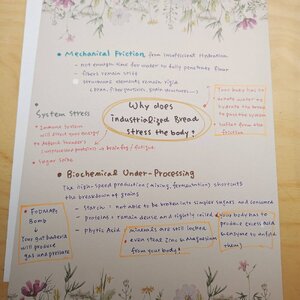 Mechanical Friction from insufficient hydration
- not enough time for water to fully penetrate flour
- fibers remain stiff
- structural elements remain rigid
(bran, fiber particles, grain structures...)
Your body has to
water to
hydrate the bread to
protect you
from the
friction
System stress
Why does
industrialized Bread
stress the body?
- Immune system
will direct your energy
to defend "invaders"
(unprocessed proteins) → brain fog / fatigue
- sugar spike
Biochemical Under-Processing
The high-speed production (mixing, fermentation) shortcuts
the breakdown of grains
- Starch = not able to be broken into simpler sugars and consumed
- Proteins = remain dense and tightly coiled
your body has to
produce excess acid
& enzyme to unfold
them)
- Phytic Acid
minerals are still locked
even steal iron & magnesium
from your body!
FODMAPs
Bomb
↓
Your gut bacteria
will produce
gas and pressure